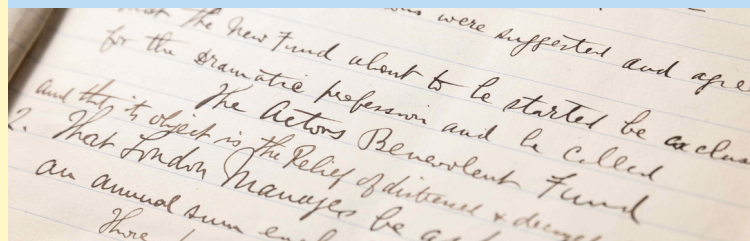 were suggested and agre
that the new Fund about to be started be exclus
for the dramatic profession and be called
The Actors Benevolent Fund
and that its object is the Relief of distress &
2. That London Managers be as
an annual sum